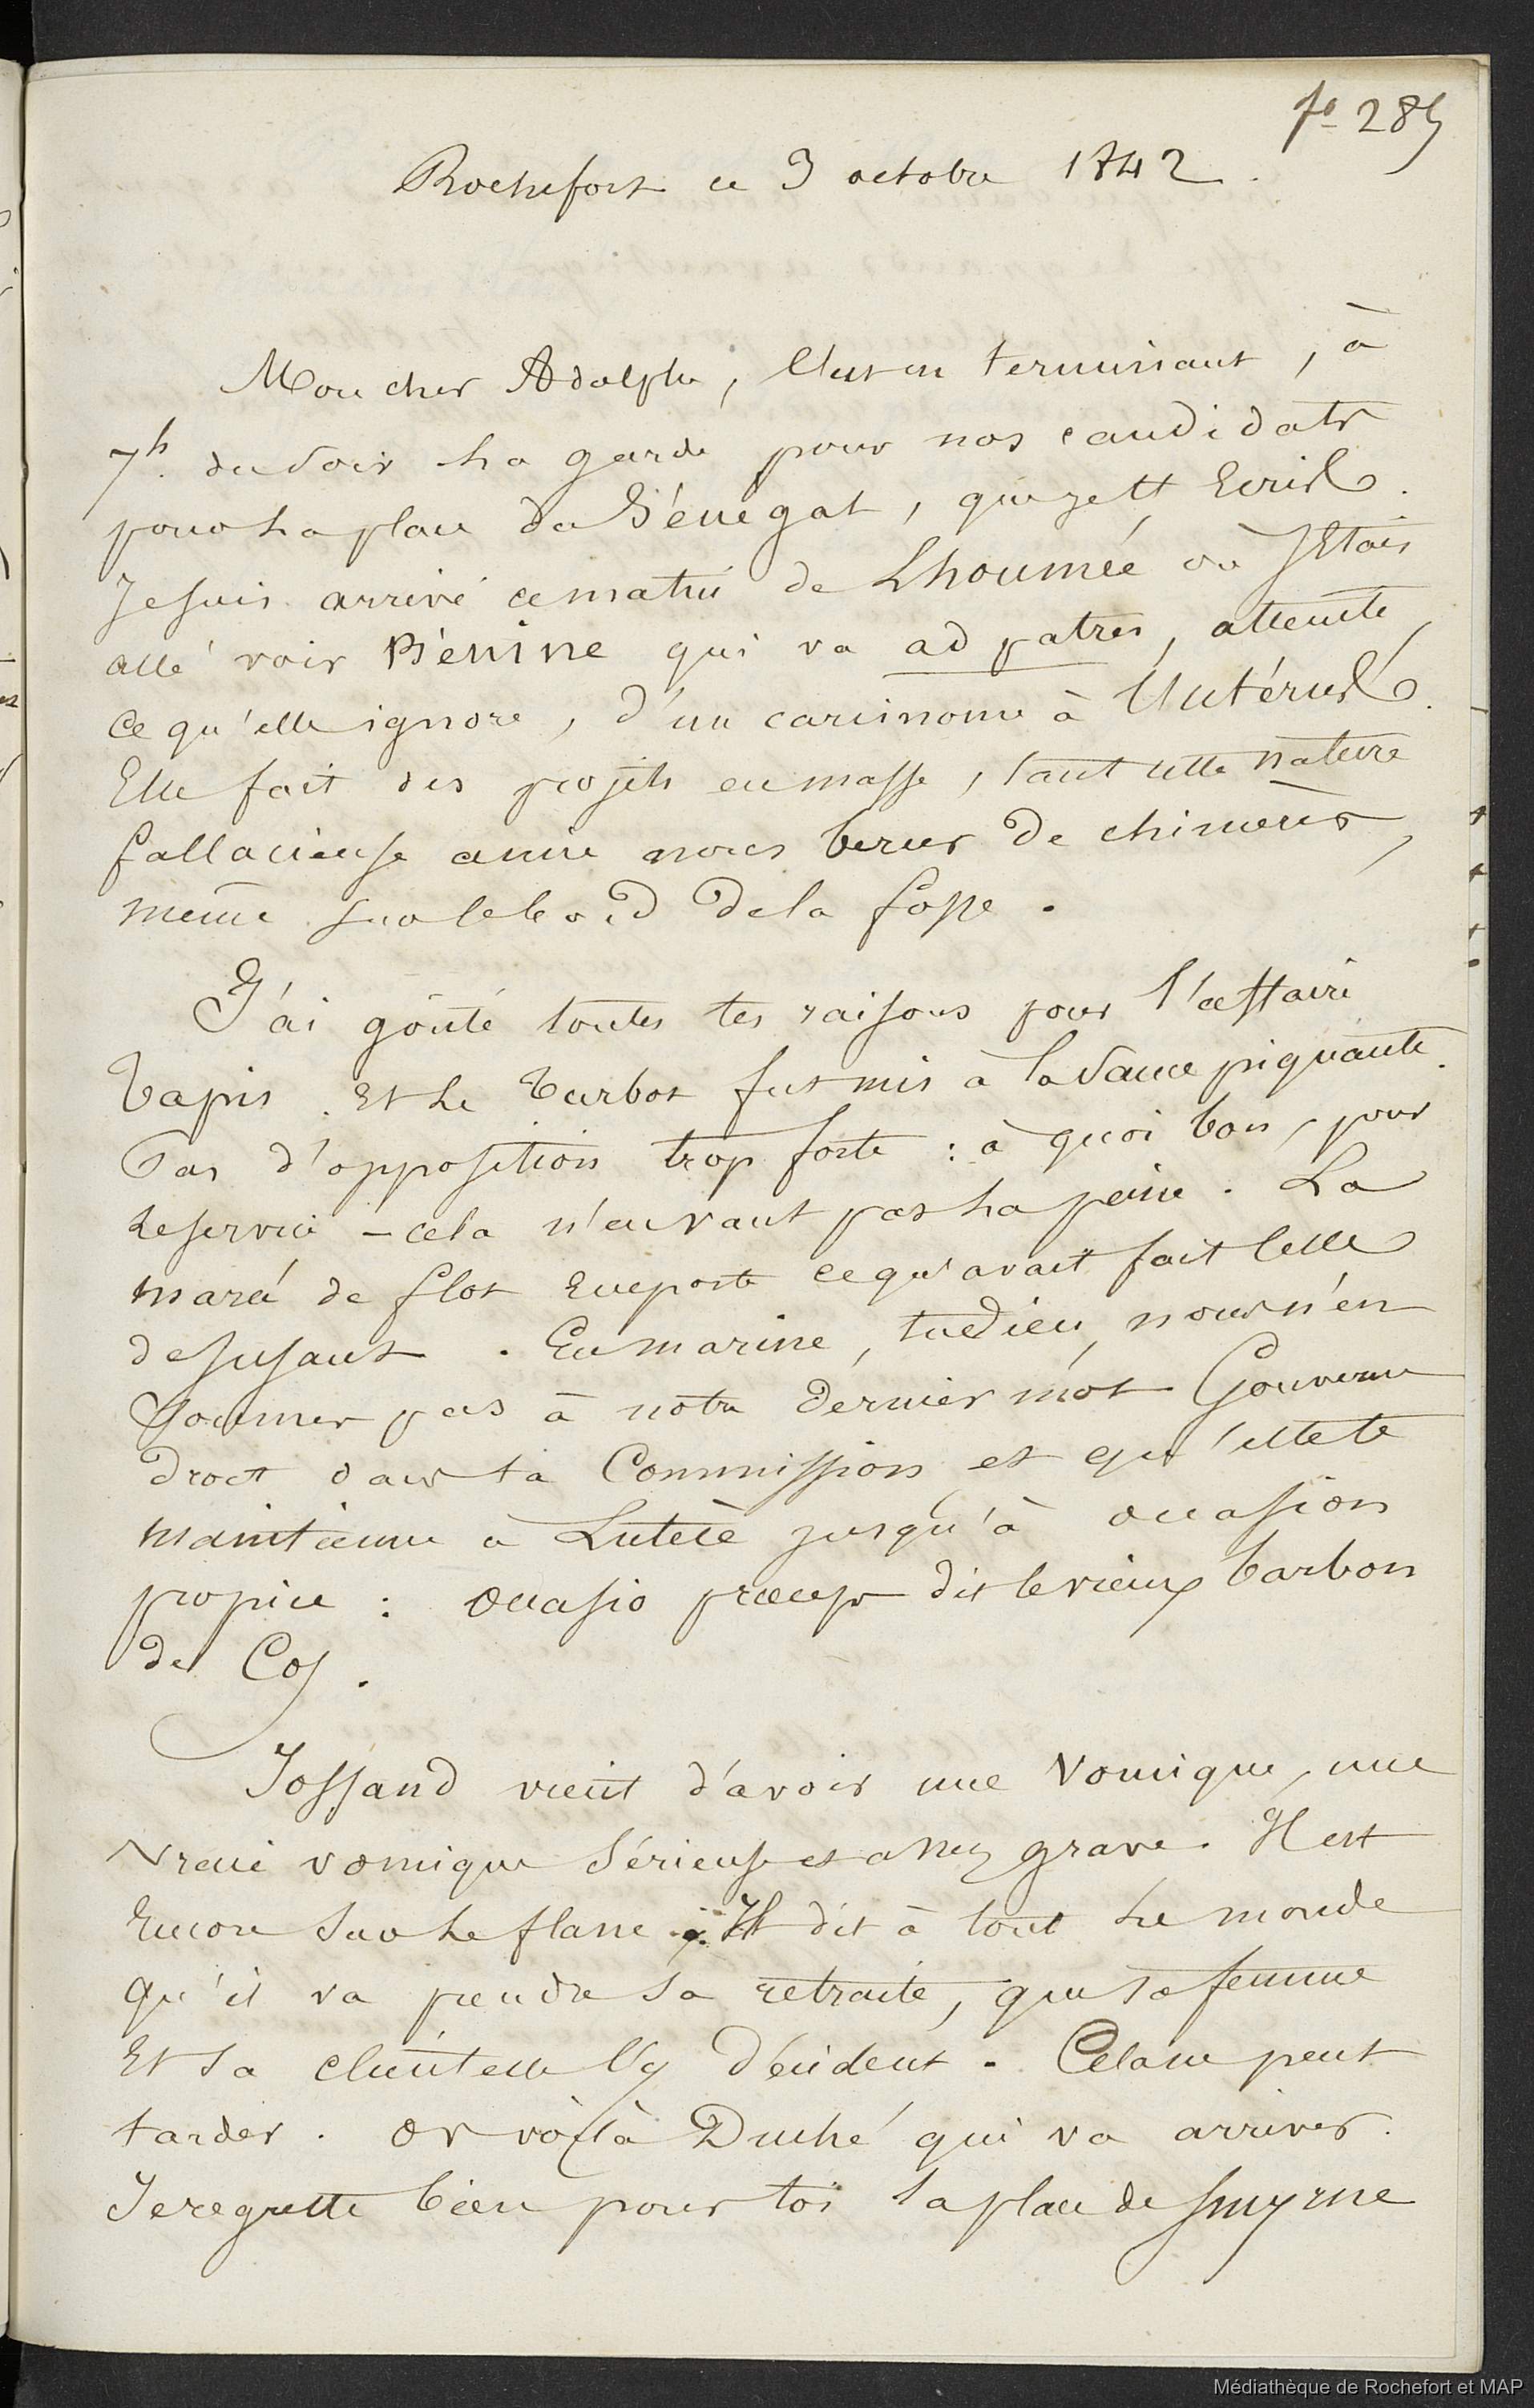 fo 285
Rochefort ce 3 octobre 1842.
Mon cher Adolphe, C'est en terminant, à
7h. du soir la garde pour nos candidats
pour la place du Sénégal, que je tt Ecris.
Je suis arrivé ce matin de Lhoumée où J'Etais
allé voir Bénine qui va ad patres, atteinte,
ce qu'elle ignore, d'un carcinome à l'utérus.
Elle fait des projets en masse, tant cette nature
fallacieuse aime nous bercer de chimères,
même sur le bord de la fosse.
J'ai goûté toutes tes raisons pour l'affaire
Tapis. Et le Turbot fut mis à la Sauce piquante.
Pas d'opposition trop forte : à quoi bon, pour
le service - cela n'en vaut pas la peine. La
marée de flot Emporte ce qu'avait fait celle
de jusant. En marine, tudieu, nous n'en
sommes pas à notre dernier mot. Gouverne
droit dans ta Commission et qu'elle te
maintienne à Lutèce jusqu'à occasion
propice : occasio præceps dit le vieux barbon
de Cos.
Jossand vient d'avoir une Vomique, une
vraie vomique sérieuse et assez grave. Il est
Encore sur le flanc. Il dit à tout le monde
qu'il va prendre sa retraite, que sa femme
Et sa clientelle l'y décident. Cela ne peut
tarder. Or voilà Duché qui va arriver.
Je regrette bien pour toi la place de Smyrne
Médiathèque de Rochefort et MAP